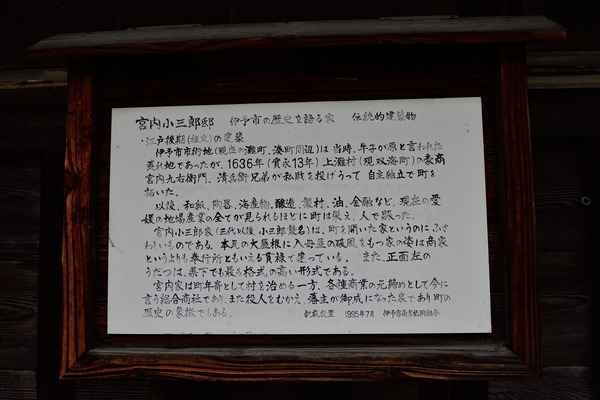 宮内小三郎邸 伊予市の歴史を語る家 伝統的建築物
・江戸後期(推定)の建築
伊予市市街地(現在の灘町、湊町周辺)は当時、牛子が原と言われた
荒れ地であったが、1636年(寛永13年)上灘村(現双海町)の豪商
宮内九右衛門、清兵衛兄弟が私財を投げうって自主独立で町を
拓いた。
以後、和紙、陶器、海産物、醸造、製材、油、金融など、現在の愛
媛の地場産業の全てが見られるほどに町は栄え、人で賑った。
宮内小三郎家(三代以後小三郎襲名)は、町を開いた家というのにふさ
わしいものである。本瓦の大屋根に入母屋の破風をもつ家の湊は商家
というよりも奉行所ともいえる貫禄で建っている。また、正面左の
うだつは、県下でも最も格式の高い形式である。
宮内家は町年寄として村を治める一方、各種商業の元締めとして今に
言う総合商社であり、また役人をむかえ、藩主が御成になった家であり町の
歴史の象徴でもある。 記載設置 1995年7月 伊予市商業協同組合